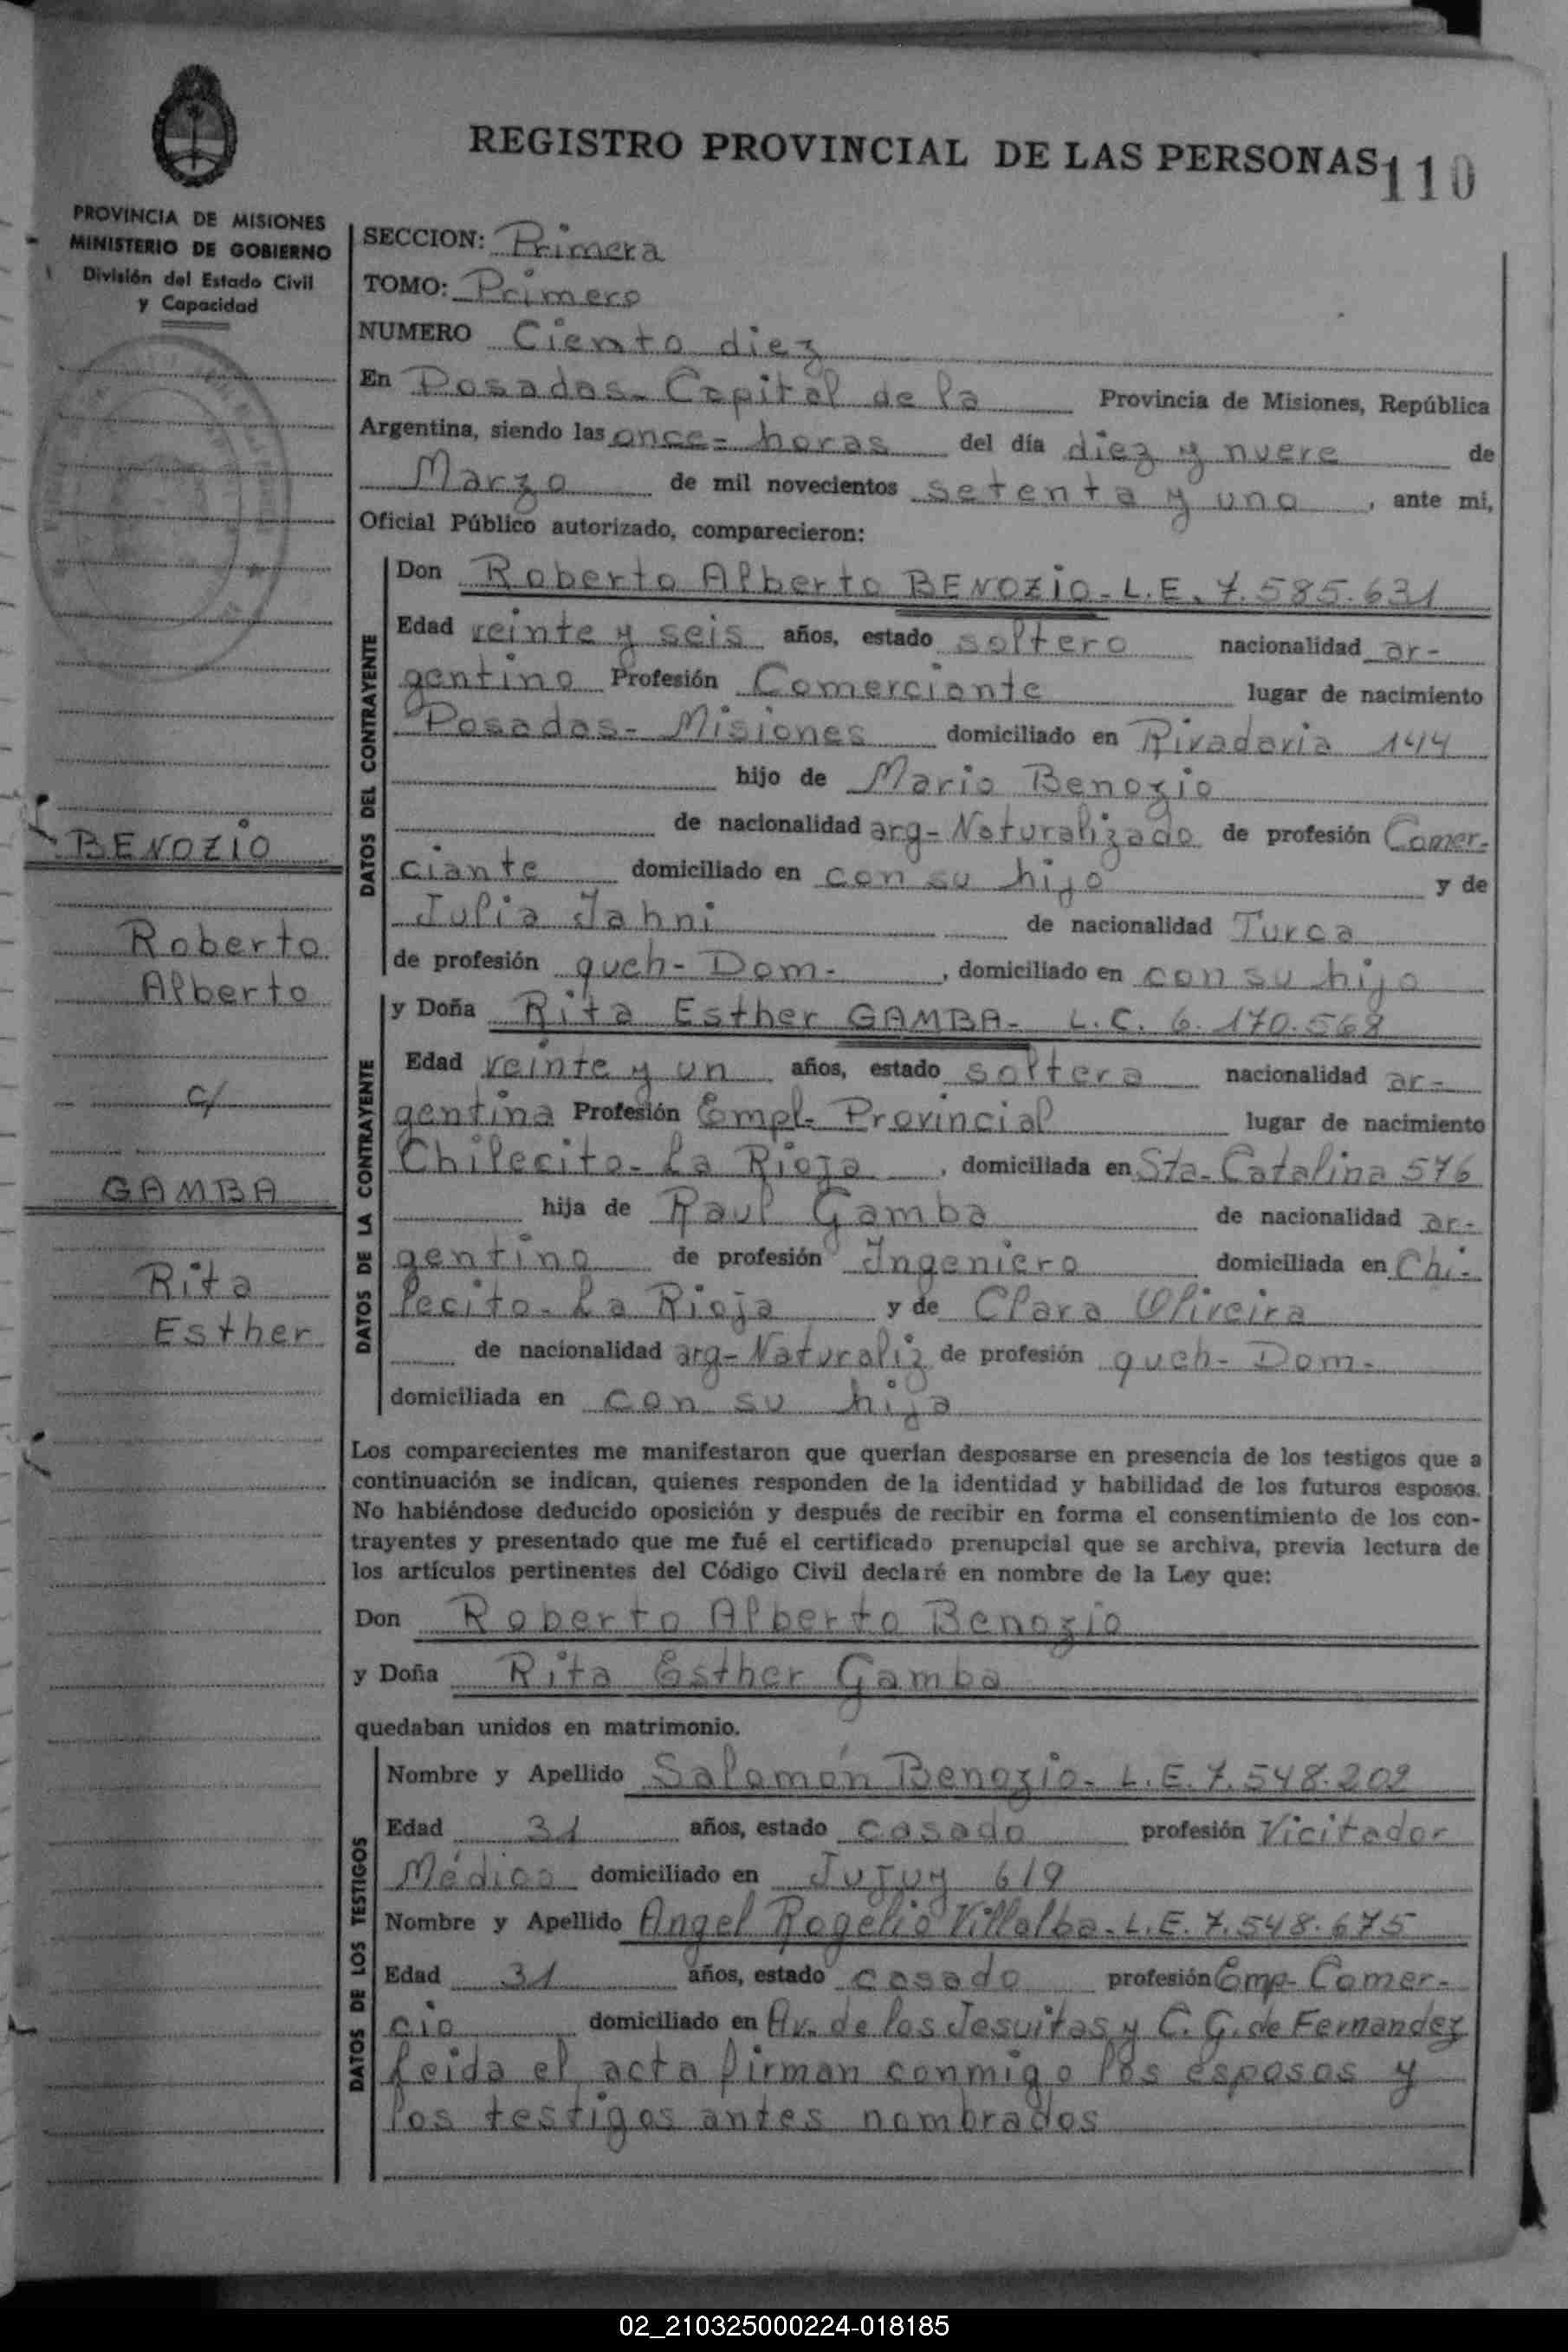 REGISTRO PROVINCIAL DE LAS PERSONAS
110
PROVINCIA DE MISIONES
MINISTERIO DE GOBIERNO
División del Estado Civil
y Capacidad
BENOZIO
Roberto
Alberto
c/
GAMBA
Rita
Esther
SECCION: Primera
TOMO: Primero
NUMERO Ciento diez
En Posadas - Capital de la Provincia de Misiones, República
Argentina, siendo las once - horas del día diez y nueve de
Marzo de mil novecientos setenta y uno, ante mi,
Oficial Público autorizado, comparecieron:
DATOS DEL CONTRAYENTE
Don Roberto Alberto BENOZIO - L.E. 7.585.631
Edad veinte y seis años, estado soltero nacionalidad ar-
gentino Profesión Comerciante lugar de nacimiento
Posadas - Misiones domiciliado en Rivadavia 144
hijo de Mario Benozio
de nacionalidad arg - Naturalizado de profesión Comer-
ciante domiciliado en con su hijo y de
Julia Jahni de nacionalidad Turca
de profesión queh - Dom -, domiciliado en con su hijo
DATOS DE LA CONTRAYENTE
y Doña Rita Esther GAMBA - L.C. 6.170.568
Edad veinte y un años, estado soltera nacionalidad ar-
gentina Profesión Empl - Provincial lugar de nacimiento
Chilecito - La Rioja, domiciliada en Sta - Catalina 576
hija de Raul Gamba de nacionalidad ar-
gentino de profesión Ingeniero domiciliada en Chi-
lecito - La Rioja y de Clara Oliveira
de nacionalidad arg - Naturaliz de profesión queh - Dom -
domiciliada en con su hija
Los comparecientes me manifestaron que querían desposarse en presencia de los testigos que a
continuación se indican, quienes responden de la identidad y habilidad de los futuros esposos.
No habiéndose deducido oposición y después de recibir en forma el consentimiento de los con-
trayentes y presentado que me fué el certificado prenupcial que se archiva, previa lectura de
los artículos pertinentes del Código Civil declaré en nombre de la Ley que:
Don Roberto Alberto Benozio
y Doña Rita Esther Gamba
quedaban unidos en matrimonio.
DATOS DE LOS TESTIGOS
Nombre y Apellido Salomón Benozio - L.E. 7.548.202
Edad 31 años, estado casado profesión Vicitador
Médico domiciliado en Jujuy 619
Nombre y Apellido Angel Rogelio Villalba - L.E. 7.548.675
Edad 31 años, estado casado profesión Emp - Comer-
cio domiciliado en Av. de los Jesuitas y C. G. de Fernandez
Leida el acta firman conmigo los esposos y
los testigos antes nombrados
02_210325000224-018185